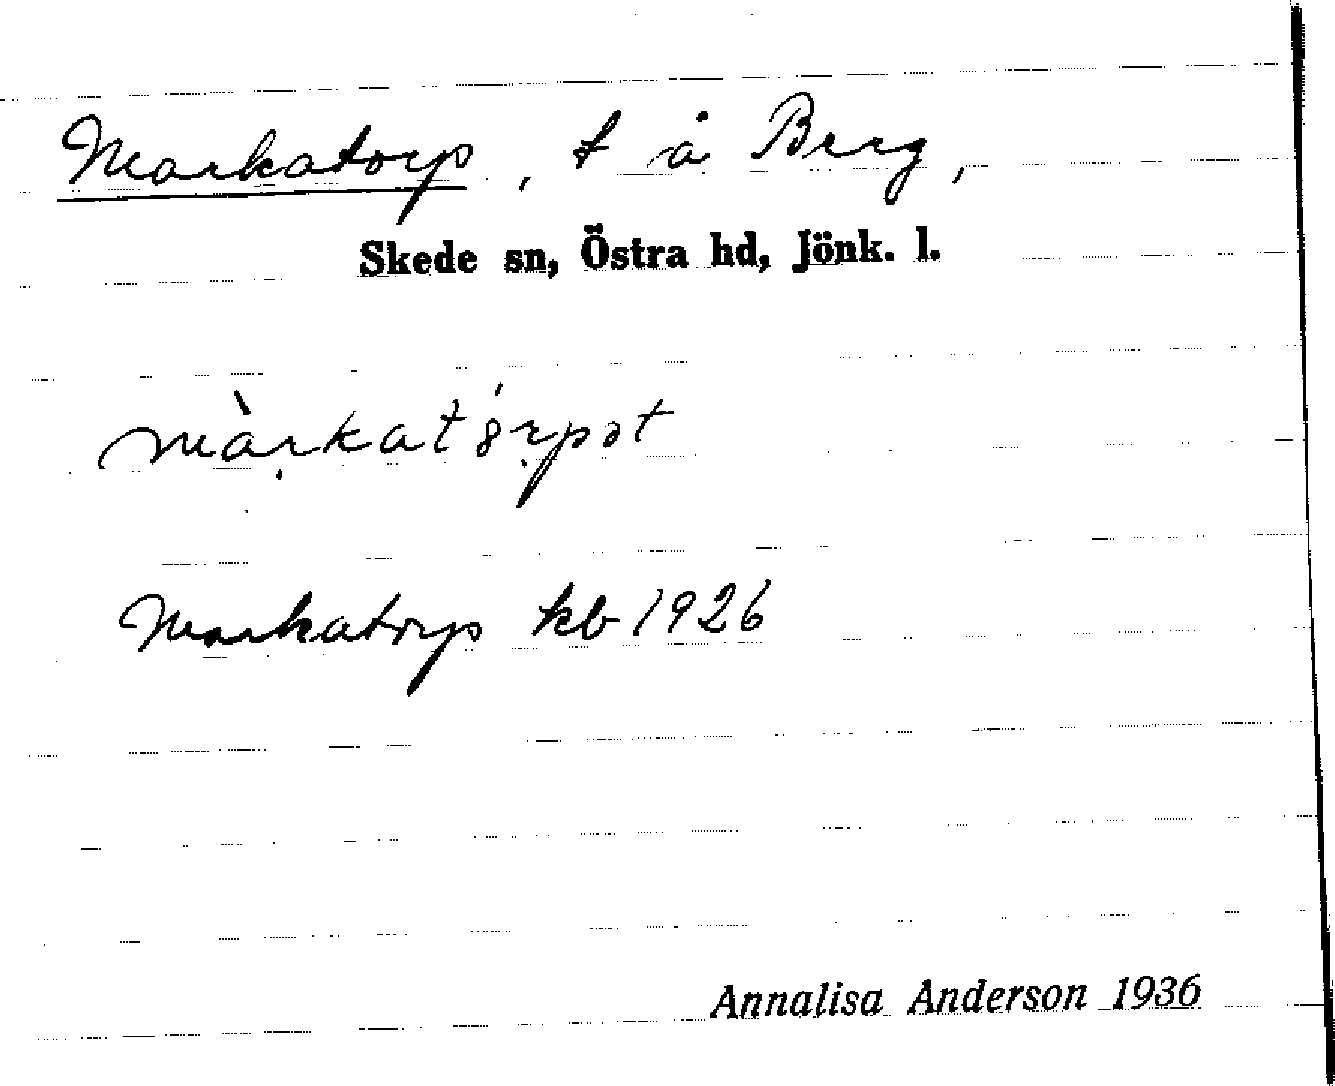 Markatorp, t å Berg,
Skede sn, Östra hd, Jönk. l.
màṛkatórpət
Markatorp kb 1926
Annalisa Anderson 1936